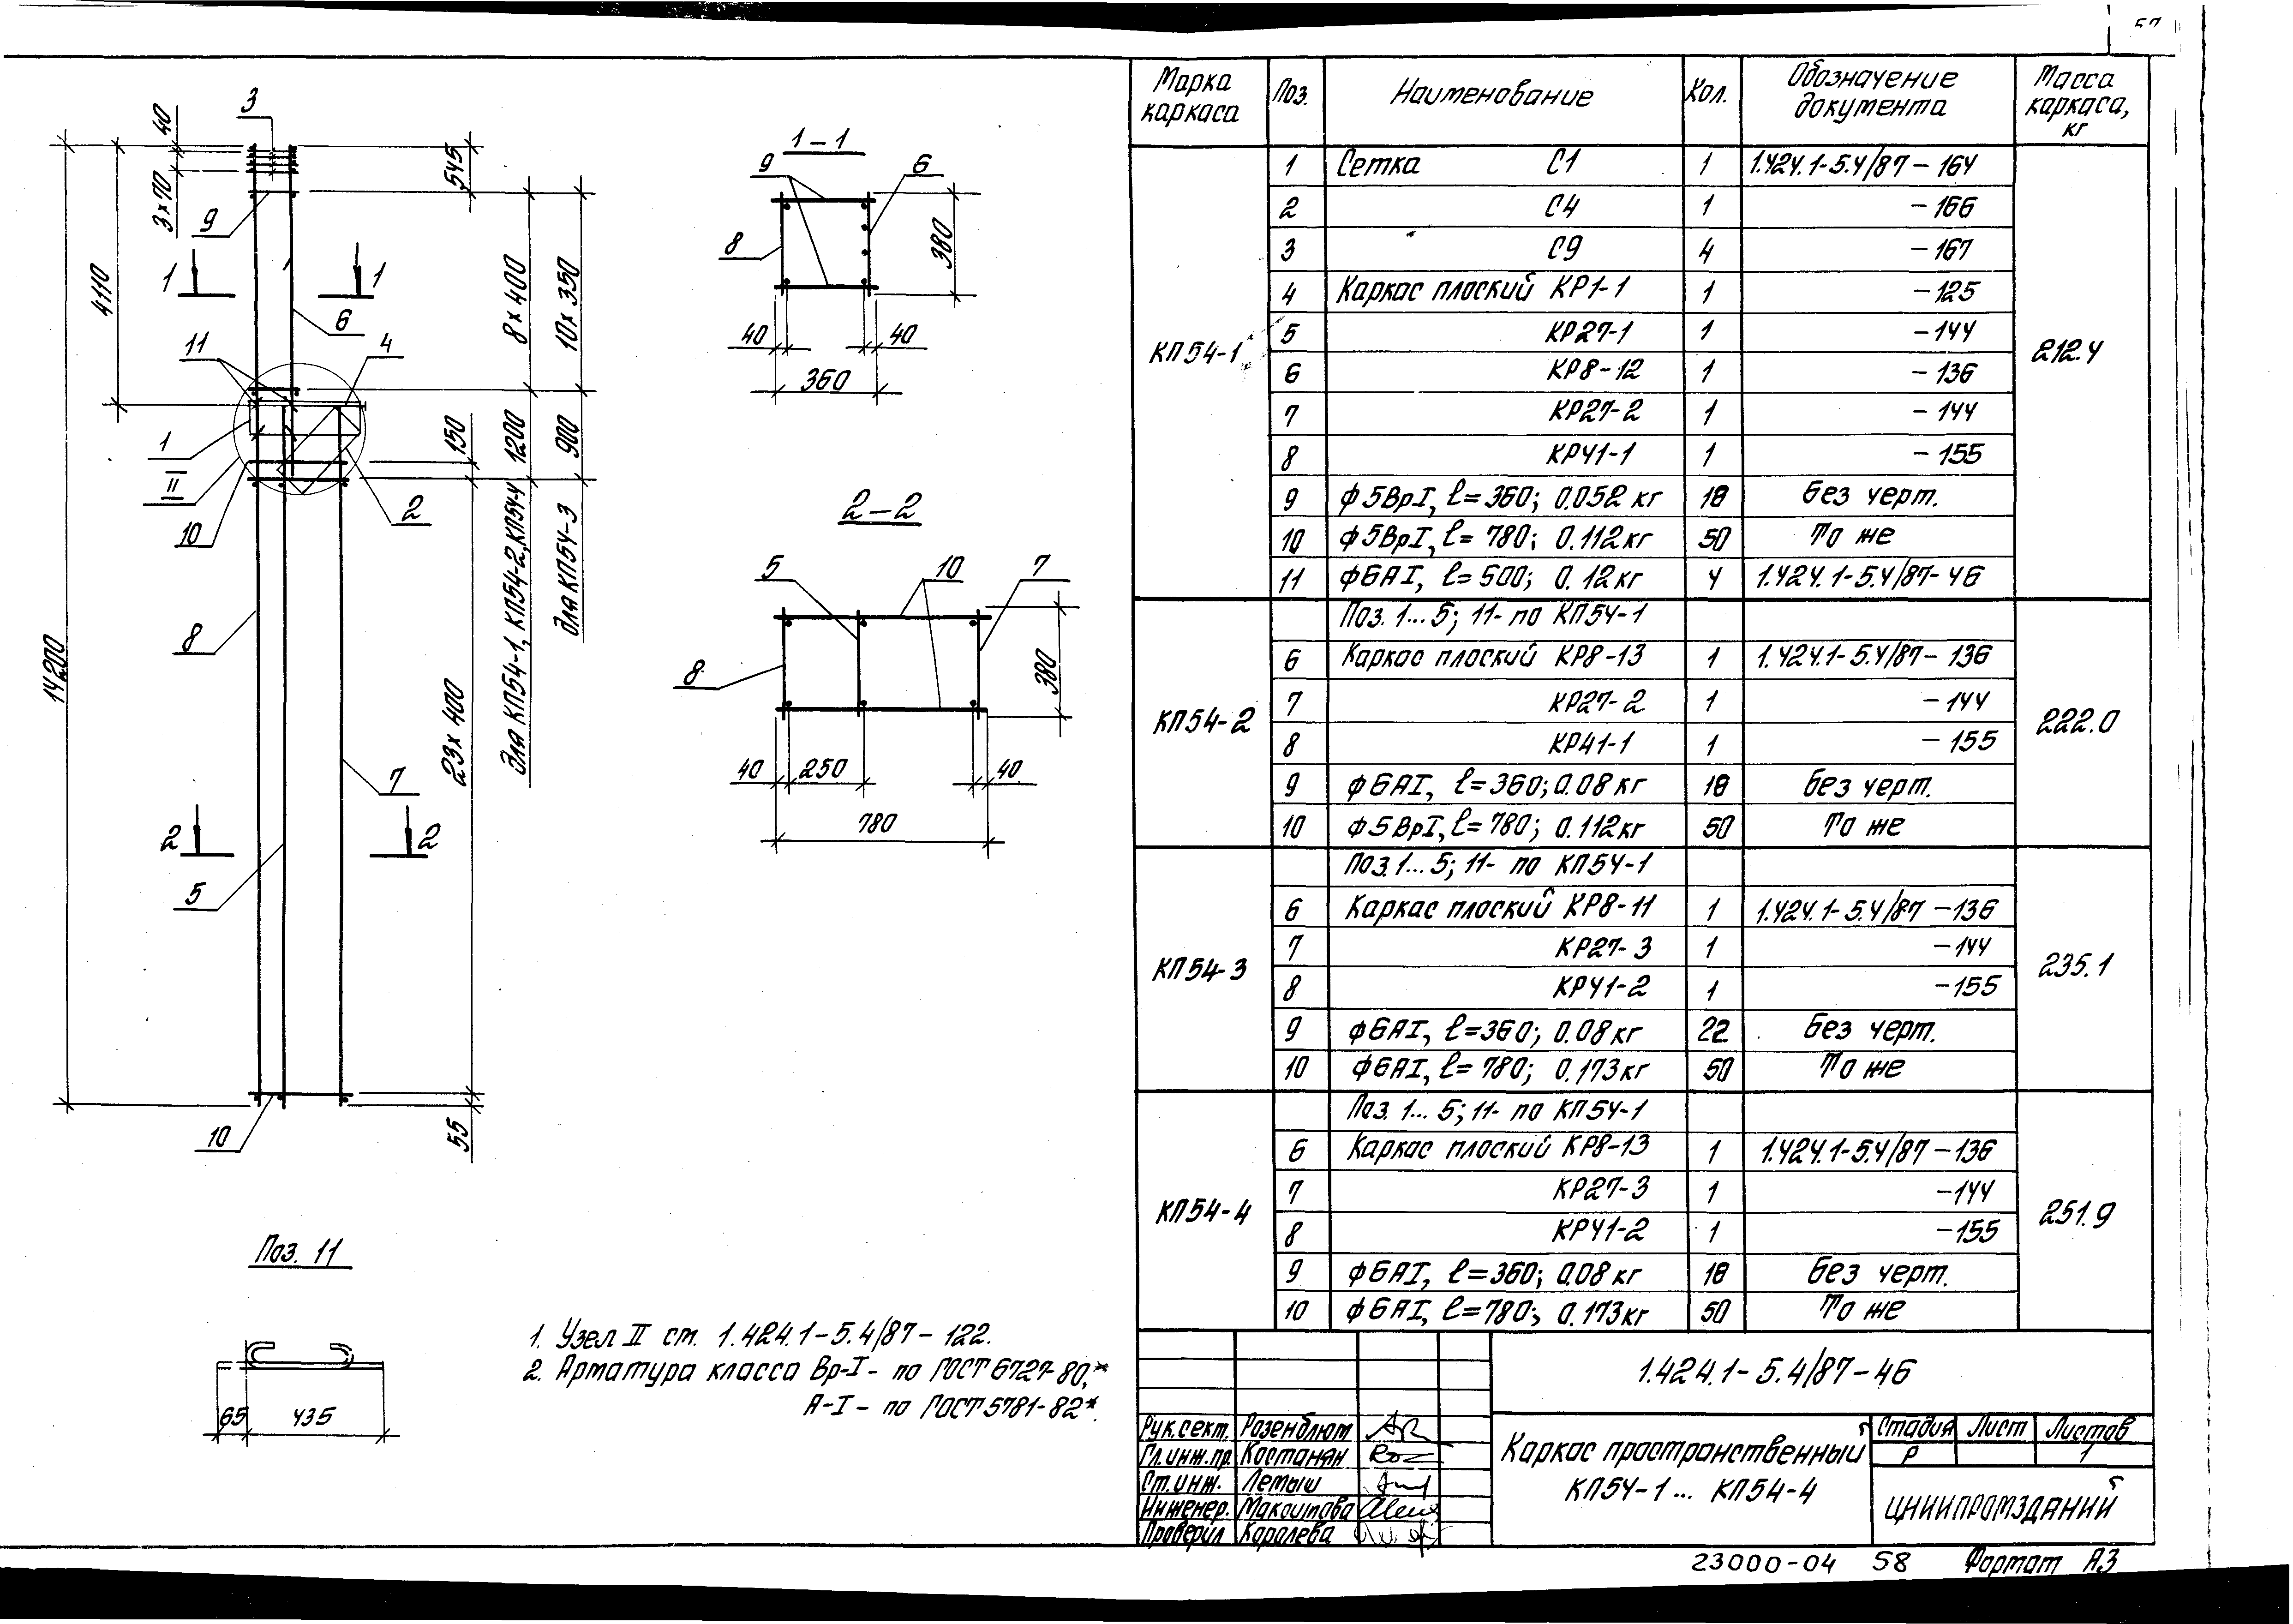 Марка каркаса | Поз. | Наименование | Кол. | Обозначение документа | Масса каркаса, кг
КП54-1 | 1 | Сетка С1 | 1 | 1.424.1-5.4/87-164 | 212.4
2 | С4 | 1 | -166
3 | С9 | 4 | -167
4 | Каркас плоский КР1-1 | 1 | -125
5 | КР27-1 | 1 | -144
6 | КР8-12 | 1 | -136
7 | КР27-2 | 1 | -144
8 | КР41-1 | 1 | -155
9 | ф5ВрI, ℓ=360; 0.052 кг | 18 | Без черт.
10 | ф5ВрI, ℓ=780; 0.112кг | 50 | То же
11 | ф6АI, ℓ=500; 0.12кг | 4 | 1.424.1-5.4/87-46
Поз. 1...5; 11- по КП54-1
КП54-2 | 6 | Каркас плоский КР8-13 | 1 | 1.424.1-5.4/87-136 | 222.0
7 | КР27-2 | 1 | -144
8 | КР41-1 | 1 | -155
9 | ф6АI, ℓ=360; 0.08кг | 18 | Без черт.
10 | ф5ВрI, ℓ=780; 0.112кг | 50 | То же
Поз. 1...5; 11- по КП54-1
КП54-3 | 6 | Каркас плоский КР8-11 | 1 | 1.424.1-5.4/87-136 | 235.1
7 | КР27-3 | 1 | -144
8 | КР41-2 | 1 | -155
9 | ф6АI, ℓ=360; 0.08кг | 22 | Без черт.
10 | ф6АI, ℓ=780; 0.173кг | 50 | То же
Поз. 1...5; 11- по КП54-1
КП54-4 | 6 | Каркас плоский КР8-13 | 1 | 1.424.1-5.4/87-136 | 251.9
7 | КР27-3 | 1 | -144
8 | КР41-2 | 1 | -155
9 | ф6АI, ℓ=360; 0.08кг | 18 | Без черт.
10 | ф6АI, ℓ=780; 0.173кг | 50 | То же
3
40
3×70
9
545
4110
1 1
6
11
4
8×400
10×350
1
II
10
2
150
1200
900
Для КП54-1, КП54-2, КП54-4
Для КП54-3
14200
8
23×400
7
2 2
5
10
55
1-1
9
6
8
380
40 40
360
2-2
5 10 7
8
380
40 250 40
780
Поз. 11
65 435
1. Узел II см. 1.424.1-5.4/87-122.
2. Арматура класса Вр-I - по ГОСТ 6727-80,*
А-I - по ГОСТ 5781-82*.
1.424.1-5.4/87-46
Рук.сект. Розенблюм
Гл.инж.пр. Костанян
Ст.инж. Лемыш
Инженер. Макоитова
Проверил Королева
Каркас пространственный
КП54-1... КП54-4
Стадия Лист Листов
Р 1
ЦНИИПРОМЗДАНИЙ
23000-04 58 Формат А3